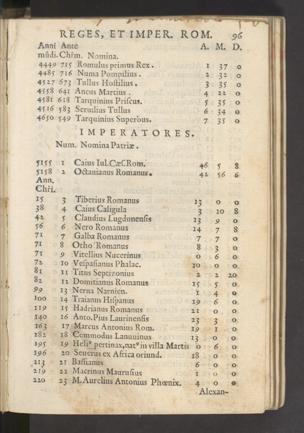 REGES, ET IMPER. ROM. 96
Anni Ante A. M. D.
mũdi. Chrm. Nomina.
4440 715 Romulus primus Rex. 1 37 0
4485 716 Numa Pompilius. 2 32 0
4527 673 Tullus Hostilius. 3 35 0
4558 641 Ancus Martius. 4 22 0
4581 618 Tarquinius Priscus. 5 35 0
4516 583 Seruilius Tullus 6 34 0
4650 549 Tarquinius Superbus. 7 35 0
IMPERATORES.
Num. Nomina Patriæ.
5155 1 Caius Iul.Cæs.Rom. 46 5 8
5158 2 Octauianus Romanus. 42 56 6
Ann.
Chri.
15 3 Tiberius Romanus 13 0 0
38 4 Caius Caligula 3 10 8
42 5 Claudius Lugdunensis 13 9 0
56 6 Nero Romanus 14 7 8
71 7 Galba Romanus 7 7 0
71 8 Otho Romanus 8 3 0
71 9 Vitellius Nucerinus 0 6 0
72 10 Vespasianus Phalac. 10 0 0
81 11 Titus Septizonius 2 2 20
82 12 Domitianus Romanus 15 5 0
99 13 Nerua Narnien. 1 4 0
100 14 Traianus Hispanus 19 6 0
119 15 Hadrianus Romanus 21 0 0
140 16 Anto.Pius Laurinensis 23 3 0
163 17 Marcus Antonius Rom. 19 1 0
182 18 Commodus Lanuuinus 13 0 0
195 19 Heli⁹ pertinax,nat⁹ in villa Martis 0 6 0
196 20 Seuerus ex Africa oriund. 18 0 0
213 21 Bassianus 6 0 0
219 22 Macrinus Maurusius 1 0 0
220 23 M.Aurelius Antonius Phœnix. 4 0 0
Alexan-